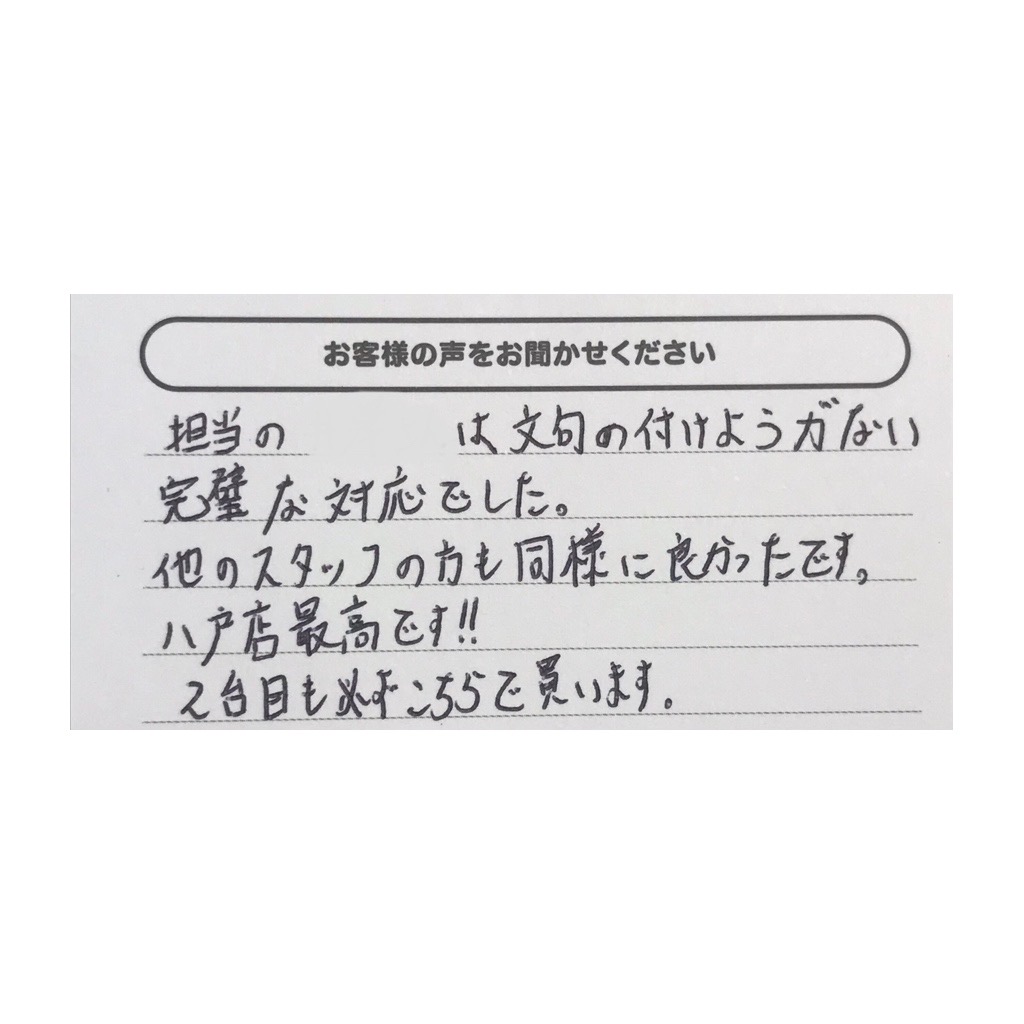 お客様の声をお聞かせください
担当の は、文句の付けようがない
完璧な対応でした。
他のスタッフの方も同様に良かったです。
八戸店最高です!!
2台目も必ずこちらで買います。